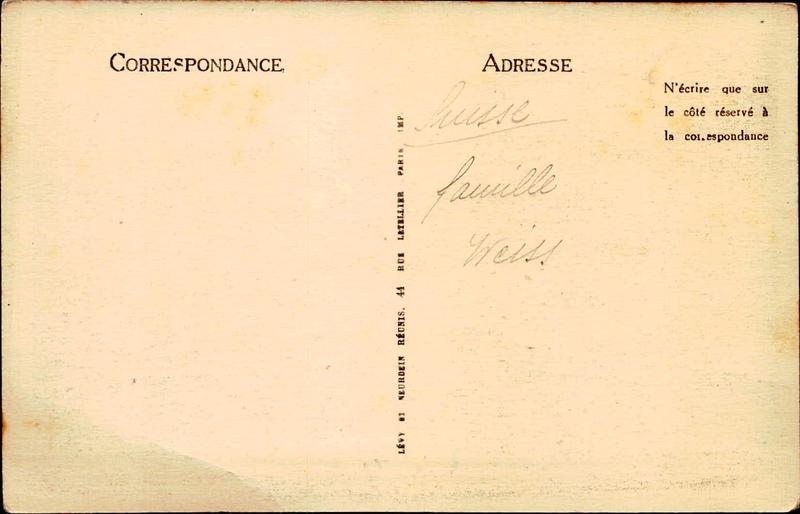 CORRESPONDANCE
ADRESSE
N'écrire que sur
le côté réservé à
la correspondance
Suisse
famille
Weiss
LÉVY ET NEURDEIN RÉUNIS, 44 RUE LETELLIER PARIS IMP.